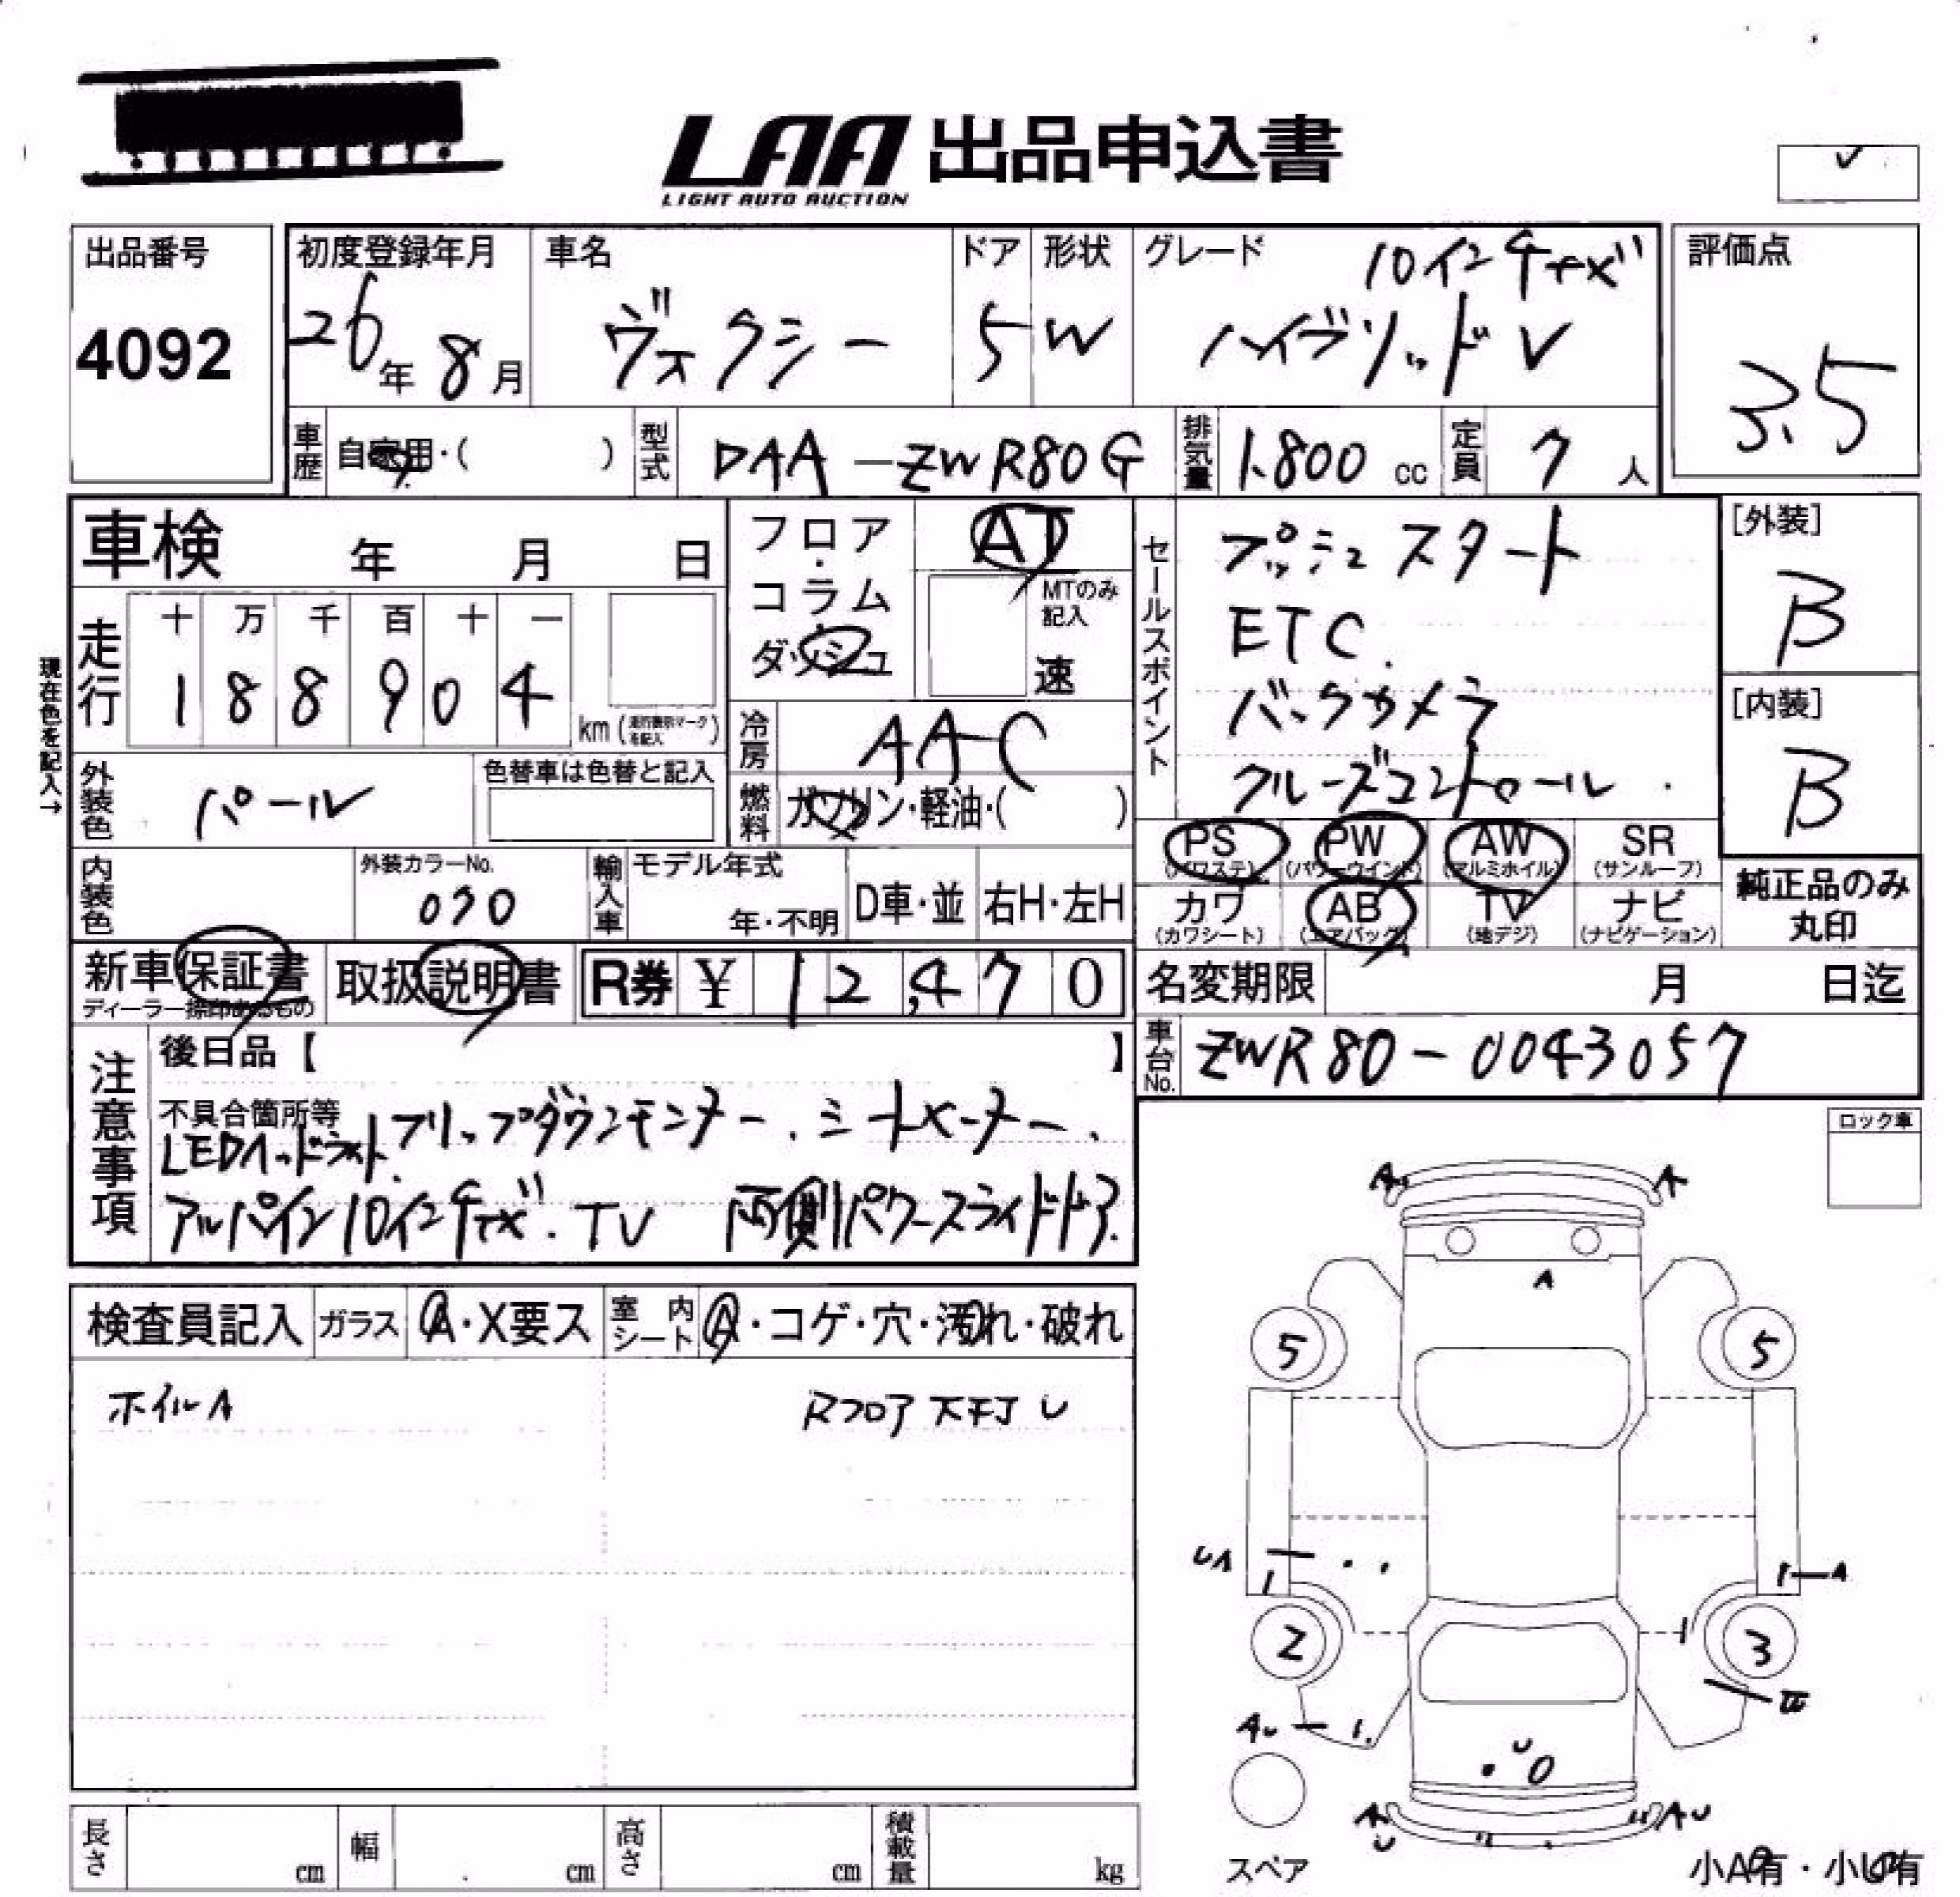 LAA 出品申込書
LIGHT AUTO AUCTION
出品番号
4092
初度登録年月
26年 8月
車名
ヴォクシー
ドア
5
形状
W
グレード
10インチナビ
ハイブリッド V
評価点
3.5
車歴
自家用・( )
型式
DAA-ZWR80G
排気量
1.800 cc
定員
7 人
車検 年 月 日
走行
十 万 千 百 十 一
1 8 8 9 0 4
km (走行機弱マーク
を記入)
現在色を記入→
外装色
パール
色替車は色替と記入
内装色
外装カラーNo.
070
輸入車
モデル年式
年・不明
D車・並
右H・左H
フロア・コラム・ダッシュ
AT
MTのみ
記入
速
冷房
AAC
燃料
ガソリン・軽油・( )
セールスポイント
プッシュスタート
ETC.
バックカメラ
クルーズコントロール
[外装]
B
[内装]
B
PS
(パワステ)
PW
(パワーウインド)
AW
(アルミホイル)
SR
(サンルーフ)
カワ
(カワシート)
AB
(エアバッグ)
TV
(地デジ)
ナビ
(ナビゲーション)
純正品のみ
丸印
新車保証書
ディーラー捺印あるもの
取扱説明書
R券 ¥ 12,470
名変期限 月 日迄
車台No.
ZWR80-0043057
注意事項
後日品【 】
不具合箇所等
フリップダウンモニター.シートヒーター.
LEDヘッドライト.
アルパイン10インチナビ.TV 両側パワースライドドア.
ロック車
検査員記入
ガラス
A・X要ス
室内シート
A・コゲ・穴・濁れ・破れ
ホイルA
Rフロア天井U
A
A
A
5
5
UA
A
2
3
AU
U
A
U
AU
スペア
小A有・小U有
長さ cm
幅 cm
高さ cm
積載量 kg